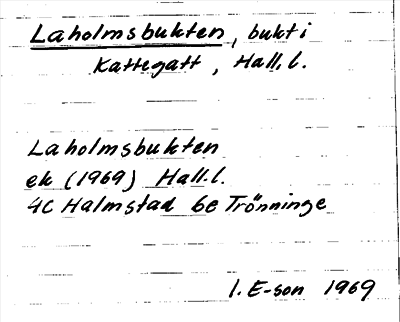 Laholmsbukten, bukt i
Kattegatt, Hall. l.
Laholmsbukten
ek (1969) Hall. l.
4C Halmstad 6e Trönninge
I. E-son 1969